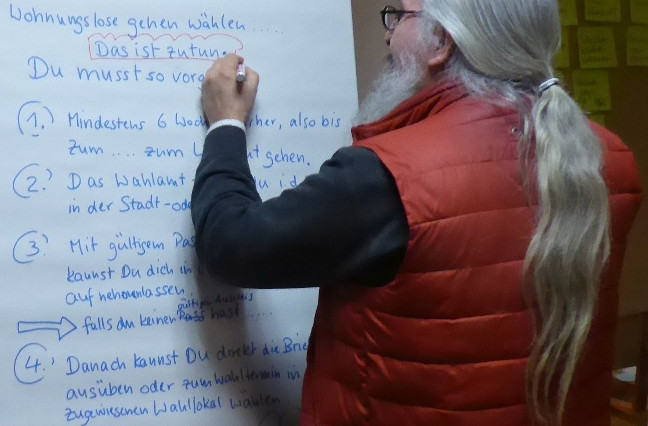 Wohnungslose gehen wählen .....
Das ist zutun
Du musst so vor
1. Mindestens 6 Woch her, also bis
zum .... zum W t gehen.
2. Das Wahlamt
in der Stadt-
3. Mit gültigem
kannst Du dich in
aufnehmen lassen
gültigen Ausweis
falls du keinen Pass hast .....
4. Danach kannst Du direkt die Brie
ausüben oder zum Wahltermin im
zugewiesenen Wahllokal wählen